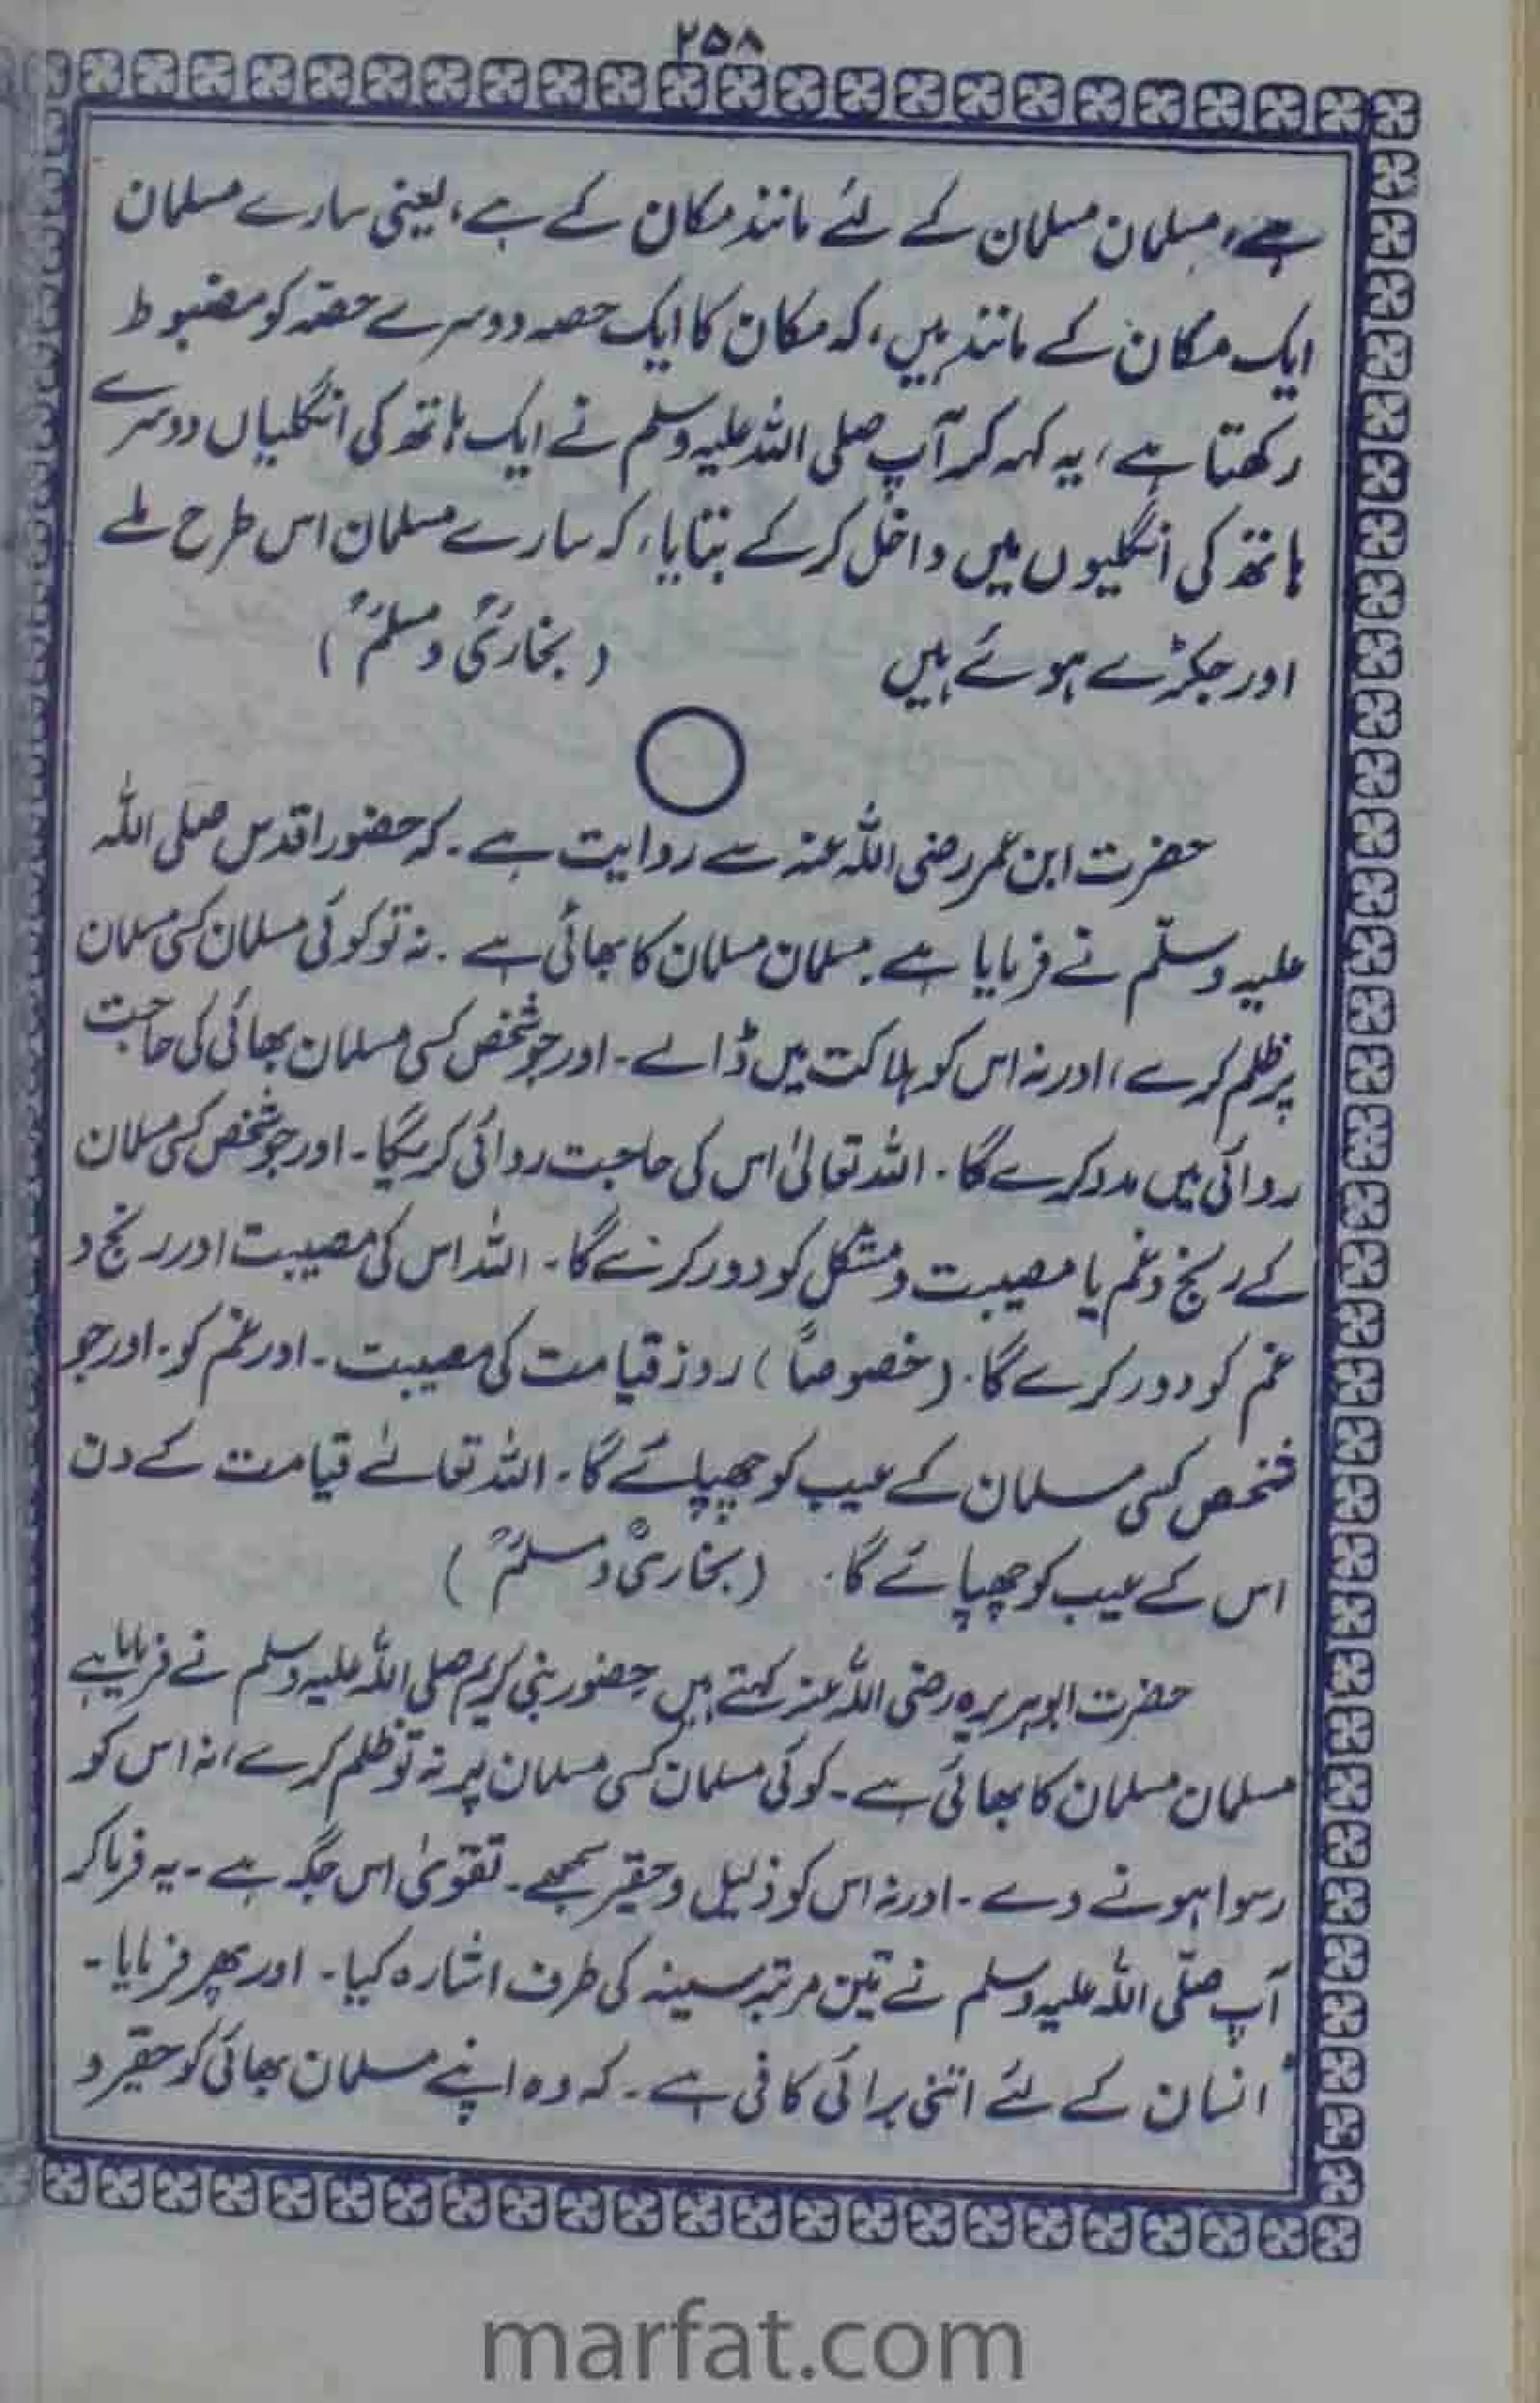 ۲۵۸
ہے، مسلمان مسلمان کے لئے مانند مکان کے ہے، یعنی سارے مسلمان
ایک مکان کے مانند ہیں، کہ مکان کا ایک حصہ دوسرے حصّہ کو مضبوط
رکھتا ہے، یہ کہہ کر آپ صلی اللہ علیہ وسلم نے ایک ہاتھ کی انگلیاں دوسرے
ہاتھ کی انگلیوں میں داخل کر کے بتایا، کہ سارے مسلمان اس طرح ملے
اور جکڑے ہوئے ہیں (بخاریؒ و مسلمؒ)
حضرت ابن عمر رضی اللہ عنہ سے روایت ہے۔ کہ حضور اقدس صلی اللہ
علیہ وسلّم نے فرمایا ہے۔ مسلمان مسلمان کا بھائی ہے۔ نہ تو کوئی مسلمان کسی مسلمان
پر ظلم کرے، اور نہ اس کو ہلاکت میں ڈالے۔ اور جو شخص کسی مسلمان بھائی کی حاجت
روائی میں مدد کرے گا۔ اللہ تعالیٰ اس کی حاجت روائی کریگا۔ اور جو شخص کسی مسلمان
کے رنج و غم یا مصیبت و مشکل کو دور کرنے گا۔ اللہ اس کی مصیبت اور رنج و
غم کو دور کرے گا۔ (خصوصاً) روز قیامت کی مصیبت۔ اور غم کو۔ اور جو
شخص کسی مسلمان کے عیب کو چھپائے گا۔ اللہ تعالےٰ قیامت کے دن
اس کے عیب کو چھپائے گا۔ (بخاریؒ و مسلمؒ)
حضرت ابوہریرہ رضی اللہ عنہ کہتے ہیں حضور نبی کریم صلی اللہ علیہ وسلم نے فرمایا ہے
مسلمان مسلمان کا بھائی ہے۔ کوئی مسلمان کسی مسلمان پر نہ تو ظلم کرے، نہ اس کو
رسوا ہونے دے۔ اور نہ اس کو ذلیل و حقیر سمجھے۔ تقویٰ اس جگہ ہے۔ یہ فرما کر
آپ صلّی اللہ علیہ وسلم نے تین مرتبہ سینہ کی طرف اشارہ کیا۔ اور پھر فرمایا۔
انسان کے لئے اتنی برائی کافی ہے۔ کہ وہ اپنے مسلمان بھائی کو حقیر و
marfat.com